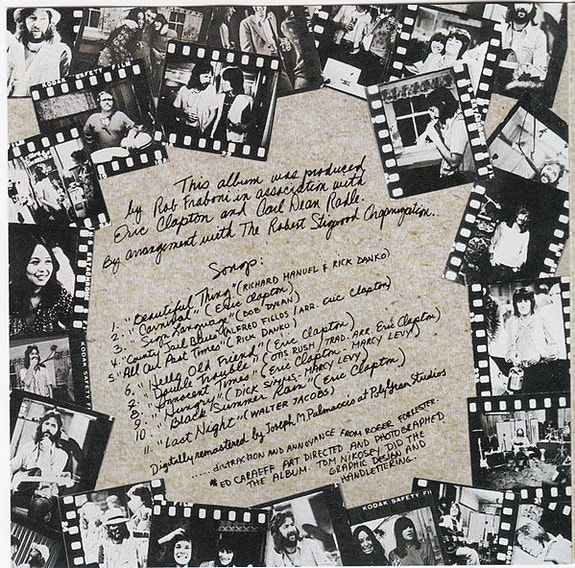 KODAK SAFETY FILM
This album was produced
by Rob Fraboni in association with
Eric Clapton and Carl Dean Radle.
By arrangement with The Robert Stigwood Organization..
Songs:
1. "Beautiful Thing" (RICHARD MANUEL & RICK DANKO)
2. "Carnival" (Eric Clapton)
3. "Sign Language" (BOB DYLAN)
4. "County Jail Blues" (ALFRED FIELDS/ARR. Eric Clapton)
5. "All Our Past Times" (RICK DANKO)
6. "Hello Old Friend" (Eric Clapton)
7. "Double Trouble" (OTIS RUSH/TRAD. ARR. Eric Clapton)
8. "Innocent Times" (Eric Clapton - MARCY LEVY)
9. "Hungry" (DICK SIMMS - MARCY LEVY)
10. "Black Summer Rain" (Eric Clapton)
11. "Last Night" (WALTER JACOBS)
Digitally remastered by Joseph M. Palmaccio at PolyGram Studios
..... DISTRACTION AND ANNOYANCE FROM ROGER FORRESTER.
ED CARAEFF ART DIRECTED AND PHOTOGRAPHED
THE ALBUM. TOM NIKOSEY DID THE
GRAPHIC DESIGN AND
HANDLETTERING.
KODAK SAFETY
KODAK SAFETY FIL